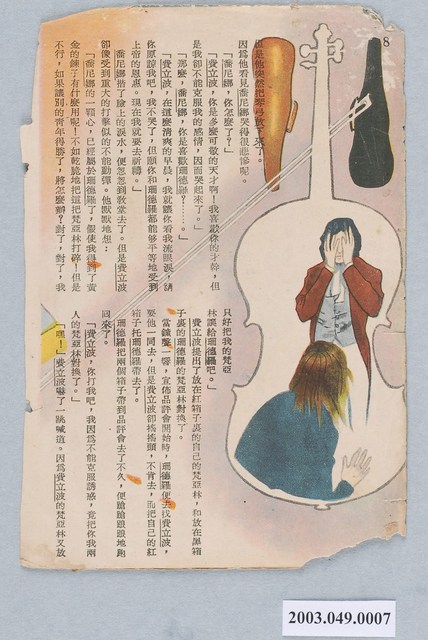 8
但是他突然把琴弓放下來了。
因為他看見喬尼娜哭得很悲慘呢。
「喬尼娜，你怎麼了？」
「費立波，你是多麼可敬的天才啊！我喜歡你的才幹，但
是我卻不能克服我的感情，因而哭起來了。」
「那麼，喬尼娜，你是喜歡珊德羅？……。」
「費立波，在這麼清爽的早晨，我就讓你看我流眼淚，請
你原諒我吧，我不哭了，但願你和珊德羅都能夠平等地受到
上帝的恩惠。現在我就要去祈禱。」
喬尼娜揩了臉上的淚水，便怱怱到敎堂去了。但是費立波
卻像受到重大的打擊似的不能動彈。他默默地想：
「喬尼娜的一顆心，已經屬於珊德羅了，假使我得到了黃
金的鍊子有什麼用呢！不如乾脆地把這把梵亞林打碎！但是
不行，如果讓別的靑年得勝了，將怎麼辦？對了，對了，我
只好把我的梵亞
林讓給珊德羅吧。」
費立波提出了放在紅箱子裏的自己的梵亞林，和放在黑箱
子裏的珊德羅的梵亞林對換了。
當鐘聲一響，宣佈品評會開始時，珊德羅便去找費立波，
要他一同去，但是費立波卻搖搖頭，不肯去，而把自己的紅
箱子托珊德羅帶去了。
珊德羅把兩個箱子帶到品評會去了不久，便蹌蹌踉踉地跑
回來了。
「費立波，你打我吧，我因為不能克服誘惑，竟把你我兩
人的梵亞林對換了。」
「嘿！」費立波嚇了一跳喊道。因為費立波的梵亞林又放
2003.049.0007